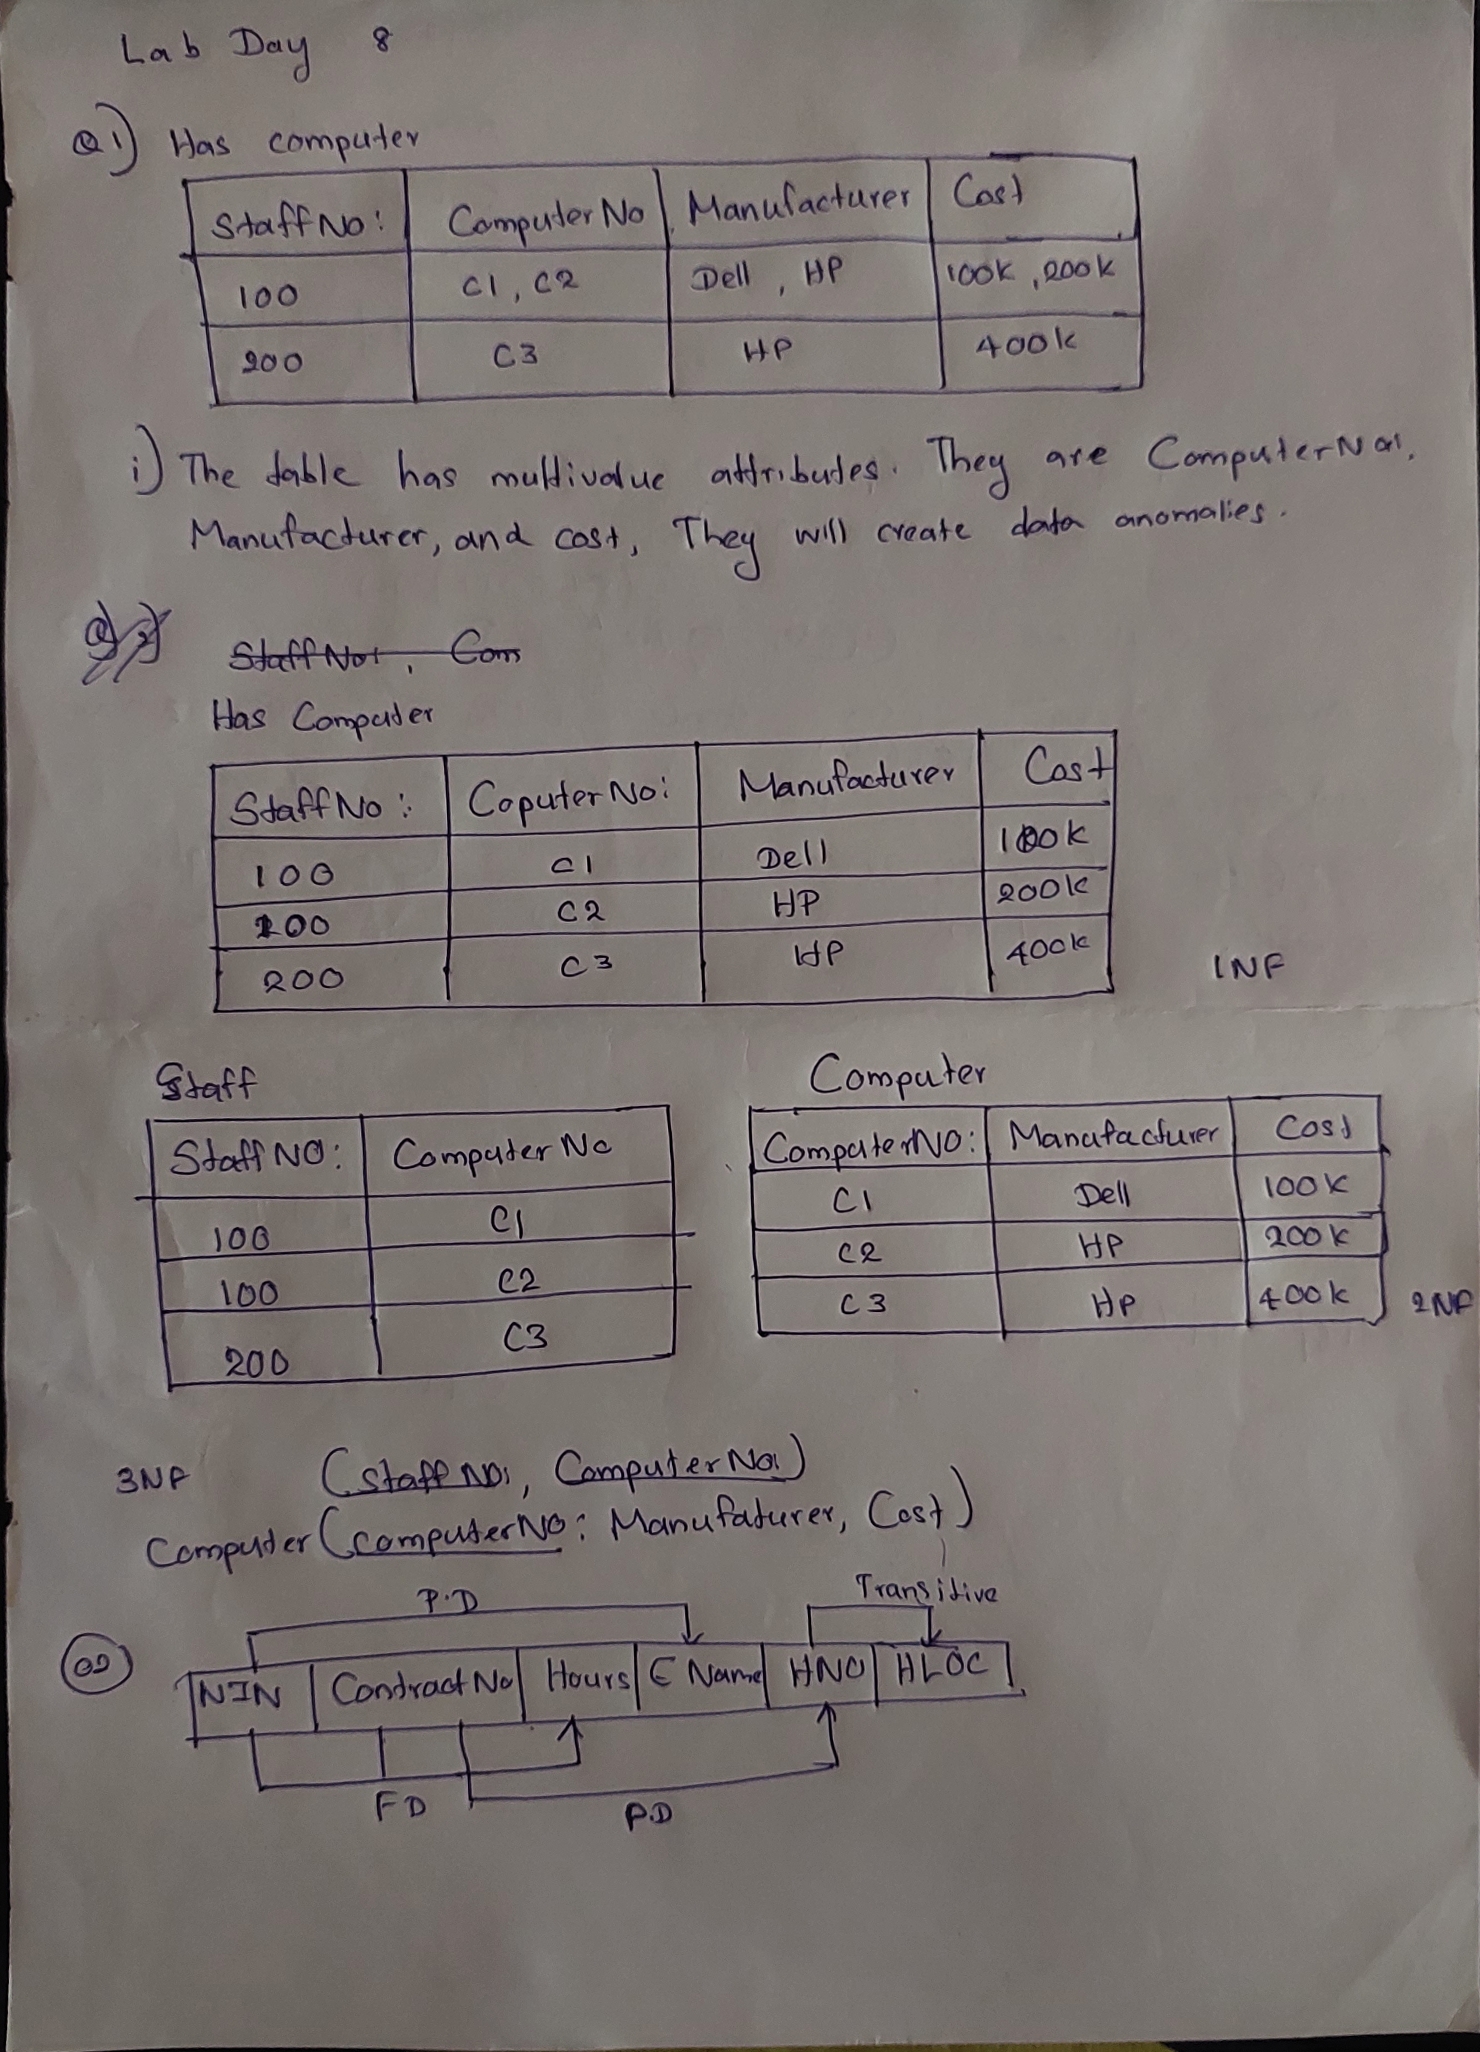 Lab Day 8
Q1) Has computer
Staff No: Computer No Manufacturer Cost
100 C1, C2 Dell, HP 100K, 200K
200 C3 HP 400k
i) The table has multivalue attributes. They are ComputerNo:,
Manufacturer, and cost, They will create data anomalies.
Staff No:, Com
Has Computer
Staff No: Coputer No: Manufacturer Cost
100 C1 Dell 100k
100 C2 HP 200k
200 C3 HP 400k
1NF
Staff
Staff NO: Computer No
100 C1
100 C2
200 C3
Computer
ComputerNO: Manufacturer Cost
C1 Dell 100K
C2 HP 200k
C3 HP 400k
2NF
3NF (Staff NO:, Computer No:)
Computer (computerNo: Manufaturer, Cost)
P.D Transitive
Q2
NIN Contract No Hours E Name HNO HLOC
FD P.D